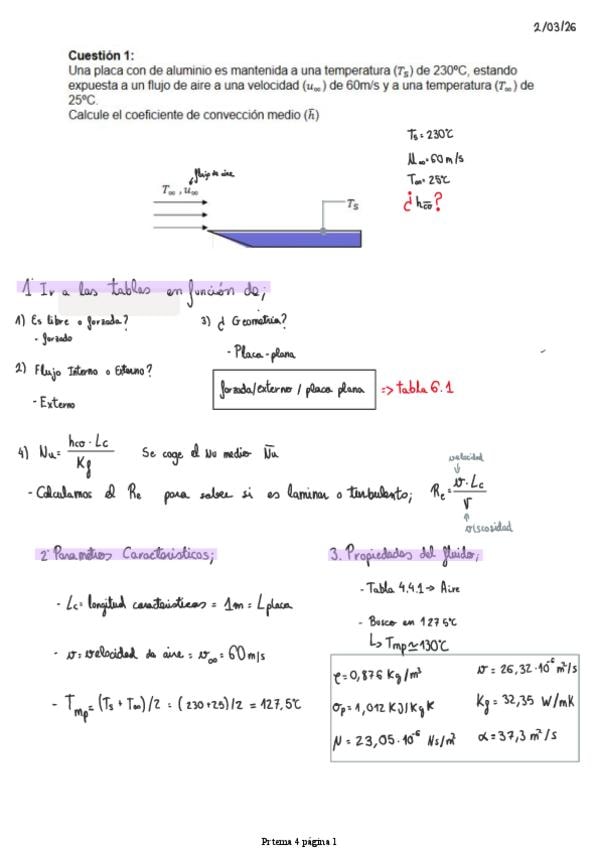 2/03/26
Cuestión 1:
Una placa con de aluminio es mantenida a una temperatura (T_s) de 230ºC, estando
expuesta a un flujo de aire a una velocidad (u_∞) de 60m/s y a una temperatura (T_∞) de
25ºC.
Calcule el coeficiente de convección medio (h̄)
Ts = 230℃
M∞ = 60 m/s
T∞ = 25℃
¿ h_co?
flujo de aire
T_∞ , u_∞
T_S
1º Ir a las tablas en función de;
1) Es libre o forzada?
- forzado
2) Flujo Interno o Externo?
- Externo
3) ¿ Geometría?
- Placa-plana
forzada/externo / placa plana => tabla 6.1
4) Nu = hco · Lc / Kf Se coge el Nu medio N̄u
- Calculamos el Re para saber si es laminar o turbulento; Re = v · Lc / ν
velocidad
viscosidad
2º Parametros Caracteristicos;
- Lc = longitud caracteristicas = 1m = Lplaca
- v = velocidad de aire = v∞ = 60 m/s
- Tmp = (Ts + T∞)/2 = (230+25)/2 = 127,5℃
3. Propiedades del fluido;
- Tabla 4.4.1 → Aire
- Busco en 127'5℃
↳ Tmp ≃ 130℃
ρ = 0,876 Kg/m³
Cp = 1,012 KJ/Kg K
μ = 23,05·10⁻⁶ Ns/m²
ν = 26,32·10⁻⁶ m²/s
Kf = 32,35 W/mK
α = 37,3 m²/s
Prtema 4 página 1